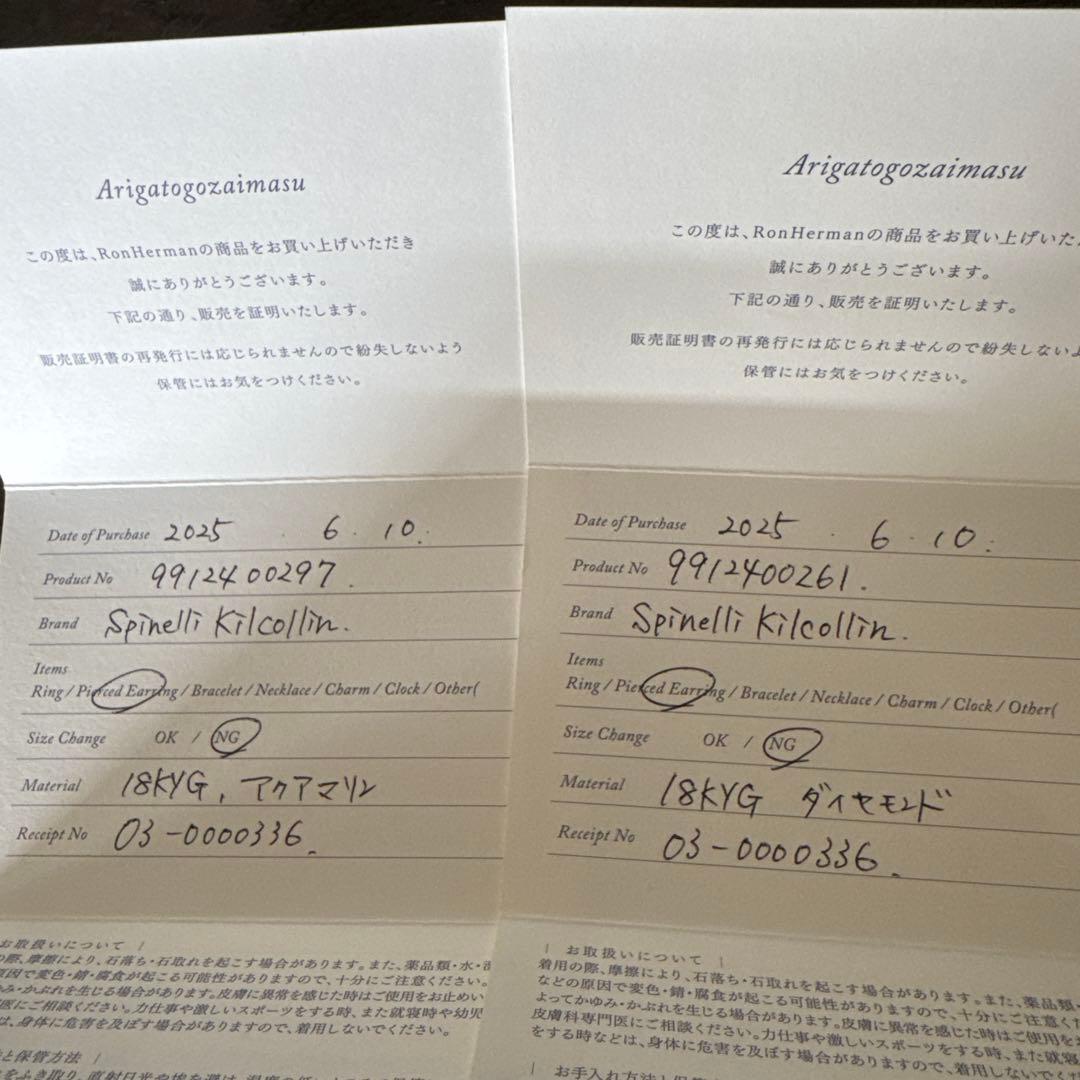 Arigatogozaimasu
この度は、RonHermanの商品をお買い上げいただき
誠にありがとうございます。
下記の通り、販売を証明いたします。
販売証明書の再発行には応じられませんので紛失しないよう
保管にはお気をつけください。
Date of Purchase 2025 . 6 . 10 .
Product No 9912400297 .
Brand Spinelli Kilcollin.
Items
Ring / Pierced Earring / Bracelet / Necklace / Charm / Clock / Other(
Size Change OK / NG
Material 18KYG, アクアマリン
Receipt No 03-0000336 .
お取扱いについて |
の際、摩擦により、石落ち・石取れを起こす場合があります。また、薬品類・水・
原因で変色・錆・腐食が起こる可能性がありますので、十分にご注意ください。
ゆみ・かぶれを生じる場合があります。皮膚に異常を感じた時はご使用をお止めい
医にご相談ください。力仕事や激しいスポーツをする時、また就寝時や幼児
は、身体に危害を及ぼす場合がありますので、着用しないでください。
と保管方法 |
Arigatogozaimasu
この度は、RonHermanの商品をお買い上げいた
誠にありがとうございます。
下記の通り、販売を証明いたします。
販売証明書の再発行には応じられませんので紛失しないよ
保管にはお気をつけください。
Date of Purchase 2025 . 6 . 10 .
Product No 9912400261 .
Brand Spinelli Kilcollin .
Items
Ring / Pierced Earring / Bracelet / Necklace / Charm / Clock / Other(
Size Change OK / NG
Material 18KYG ダイヤモンド
Receipt No 03-0000336 .
| お取扱いについて |
着用の際、摩擦により、石落ち・石取れを起こす場合があります。また、薬品類・
などの原因で変色・錆・腐食が起こる可能性がありますので、十分にご注意くだ
よってかゆみ・かぶれを生じる場合があります。皮膚に異常を感じた時はご使用をお
皮膚科専門医にご相談ください。力仕事や激しいスポーツをする時、また就寝
をする時などは、身体に危害を及ぼす場合がありますので、着用しないでくだ
| お手入れ方法と保管